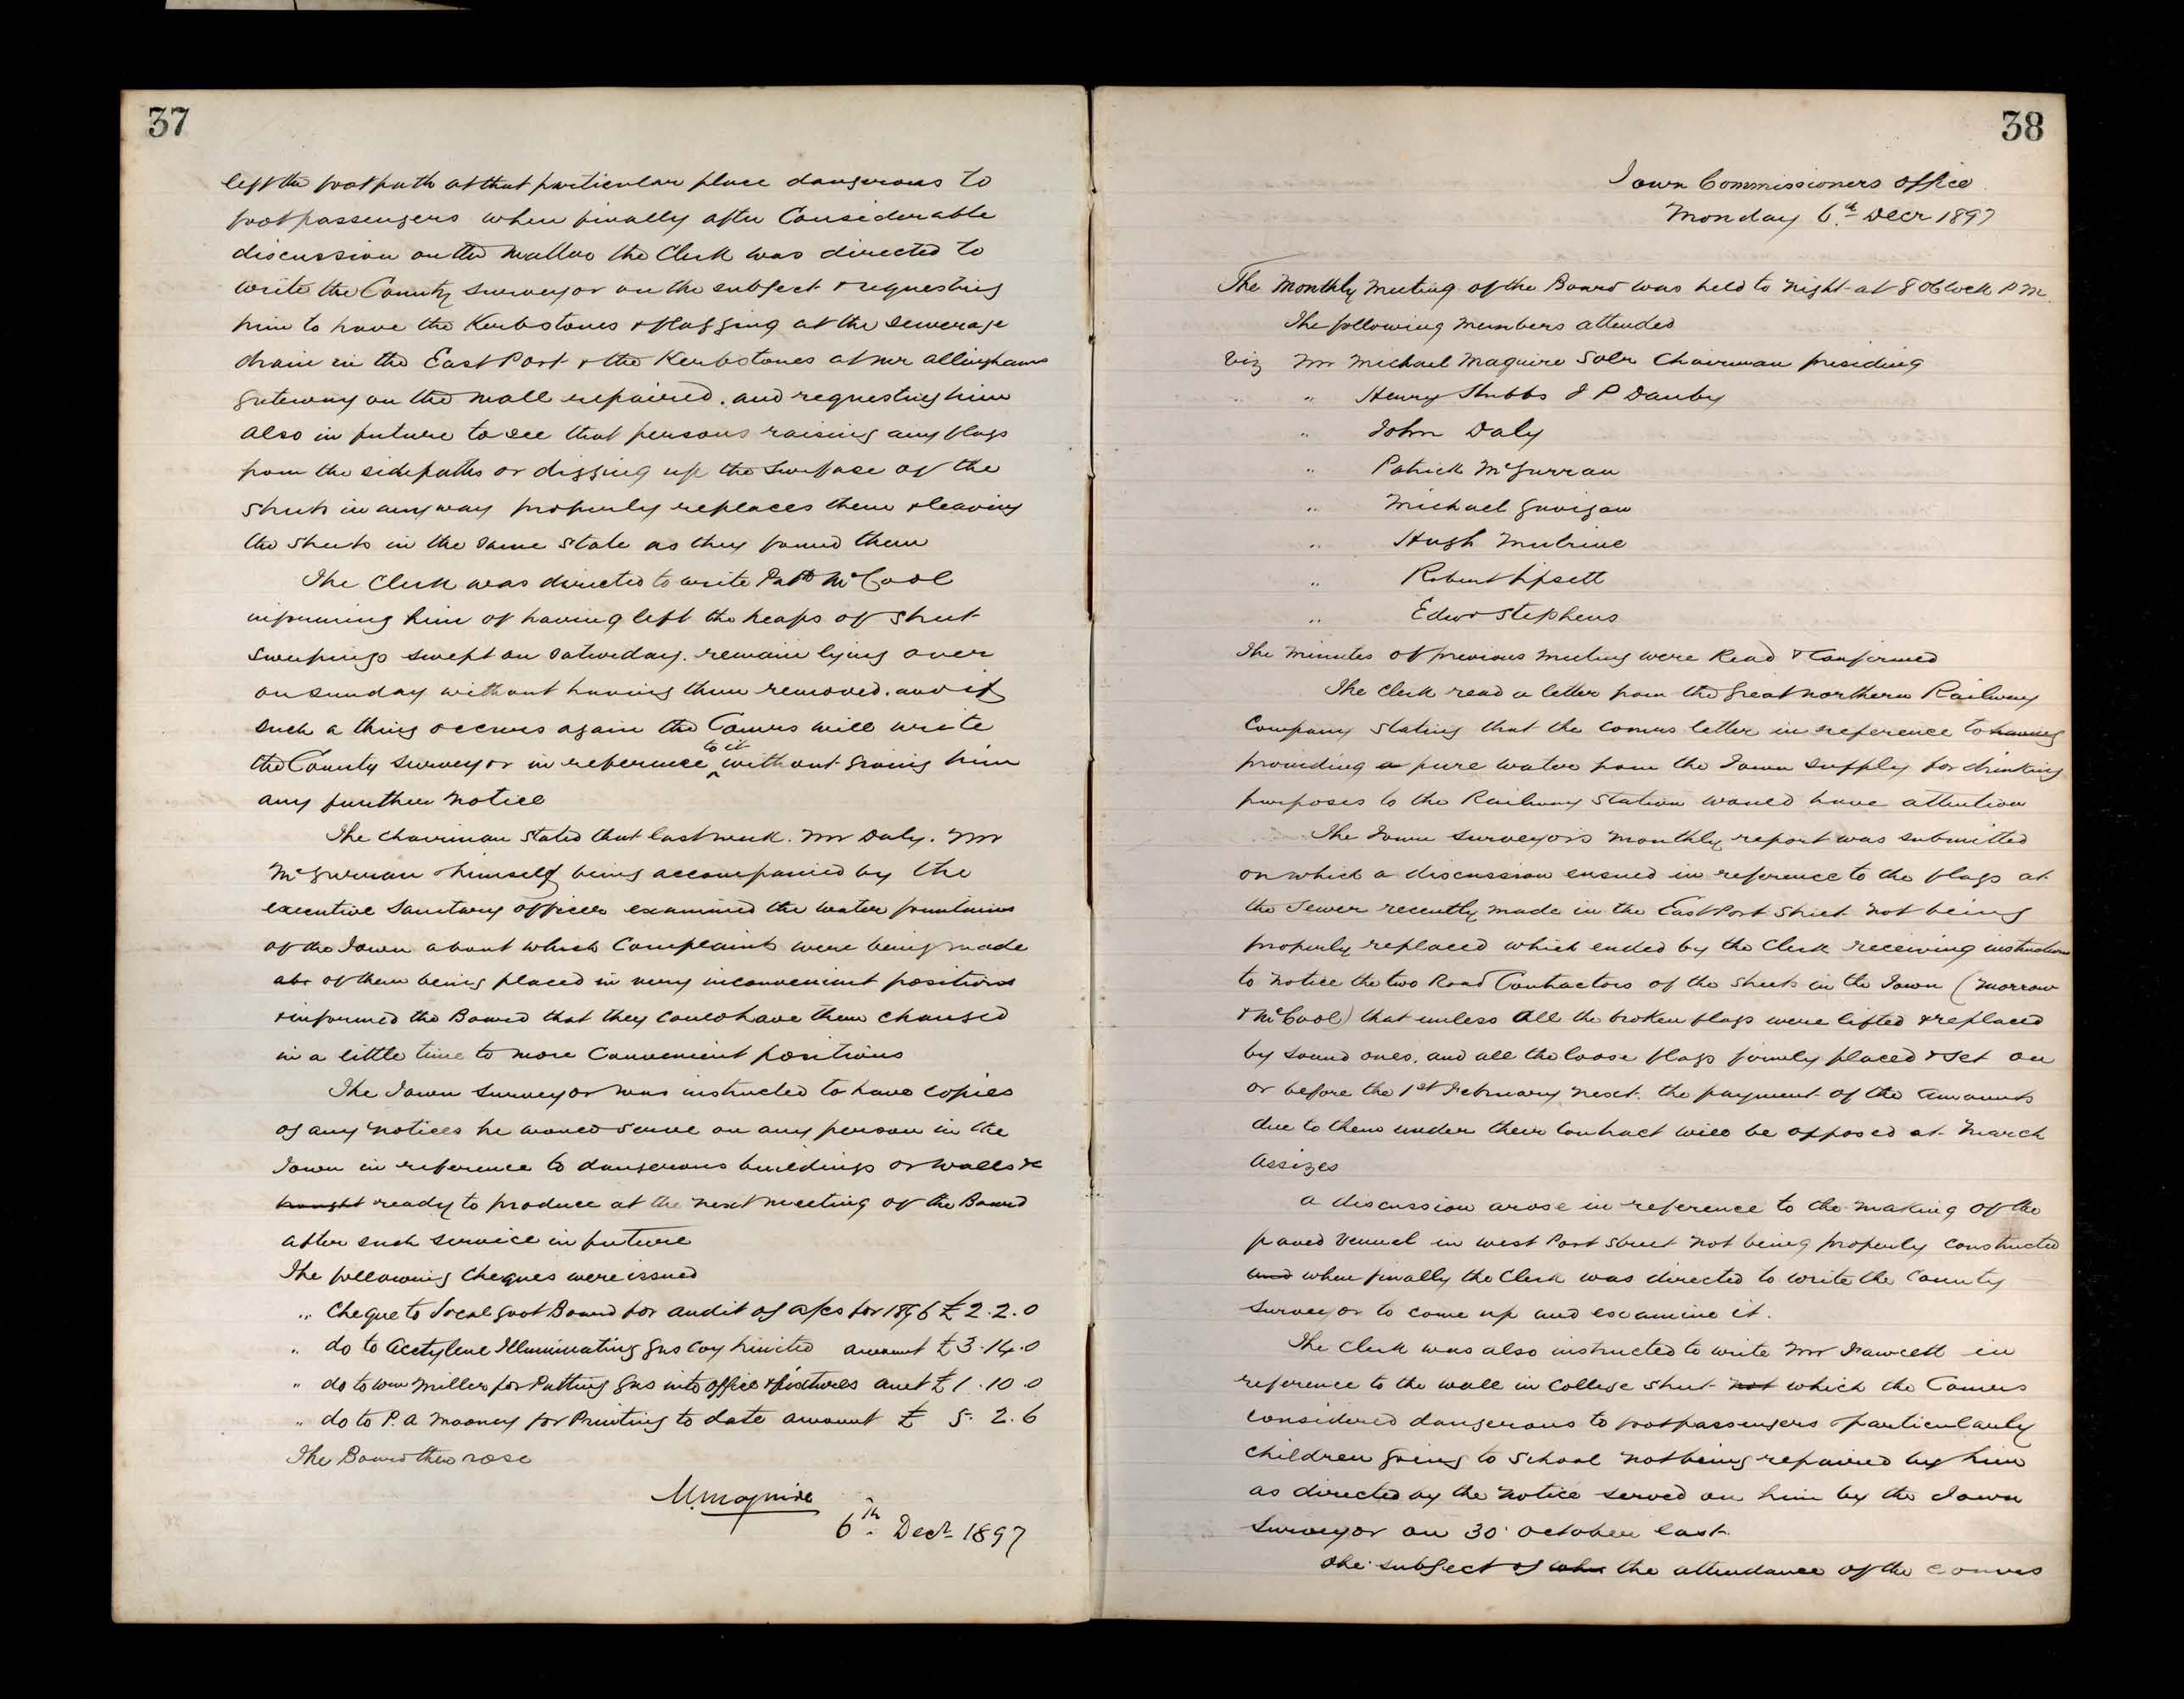 37
left the footpath at that particular place dangerous to
footpassengers when finally after Considerable
discussion on the matter the Clerk was directed to
write the County Surveyor on the subject & requesting
him to have the Kerbstones & flagging at the sewerage
drain in the East Port & the Kerbstones at Mr Allinghams
gateway on the Mall repaired. and requesting him
also in future to see that persons raising any flags
from the sidepaths or digging up the surface of the
Streets in any way properly replaces them & leaving
the Streets in the same state as they found them
The Clerk was directed to write Patk McCool
informing him of having left the heaps of street
sweepings swept on Saturday. remain lying over
on Sunday without having them removed. and if
such a thing occurs again the Comrs will write
the County Surveyor in reference to it without giving him
any further notice
The Chairman stated that last week. Mr Daly. Mr
McGurran & himself being accompanied by the
executive Sanitary officer examined the water fountains
of the Town about which Complaints were being made
of them being placed in very inconvenient positions
& informed the Board that they could have them changed
in a little time to more Convenient positions
The Town Surveyor was instructed to have copies
of any notices he would serve on any person in the
Town in reference to dangerous buildings or walls &c
brought ready to produce at the next meeting of the Board
after such service in future
The following Cheques were issued
" Cheque to Local Govt Board for audit of a/cs for 1896 £2.2.0
" do to Acetylene Illuminating Gas Coy Limited amount £3.14.0
" do to Wm Miller for Putting Gas into office & fixtures amt £1.10.0
" do to P. A Mooney for Printing to date amount £ 5.2.6
The Board then rose
M. Maguire
6th Decr 1897
38
Town Commissioners office
Monday 6th Decr 1897
The Monthly Meeting of the Board was held to night at 8 oClock P.M
The following Members attended
Viz Mr Michael Maguire Solr Chairman presiding
" Henry Stubbs J P Danby
" John Daly
" Patrick McGurran
" Michael Gavigan
" Hugh Mulrine
" Robert Lipsett
" Edwd Stephens
The Minutes of previous Meeting were Read & Confirmed
The Clerk read a letter from the Great Northern Railway
Company stating that the Comrs letter in reference to having
providing a pure water from the Town supply for drinking
purposes to the Railway Station would have attention
The Town Surveyors Monthly report was submitted
on which a discussion ensued in reference to the flags at
the Sewer recently made in the East Port Street not being
properly replaced which ended by the Clerk receiving instructions
to notice the two Road Contractors of the Streets in the Town (Morrow
& McCool) that unless all the broken flags were lifted & replaced
by sound ones. and all the loose flags firmly placed & set on
or before the 1st February next. the payment of the amounts
due to them under their Contract will be opposed at March
Assizes
A discussion arose in reference to the making of the
paved Vennel in West Port Street not being properly constructed
and when finally the Clerk was directed to write the County
Surveyor to come up and examine it.
The Clerk was also instructed to write Mr Fawcett in
reference to the wall in College Street not which the Comrs
considered dangerous to footpassengers & particularly
children going to School not being repaired by him
as directed by the notice served on him by the Town
Surveyor on 30 October last.
The subject of when the attendance of the Comrs